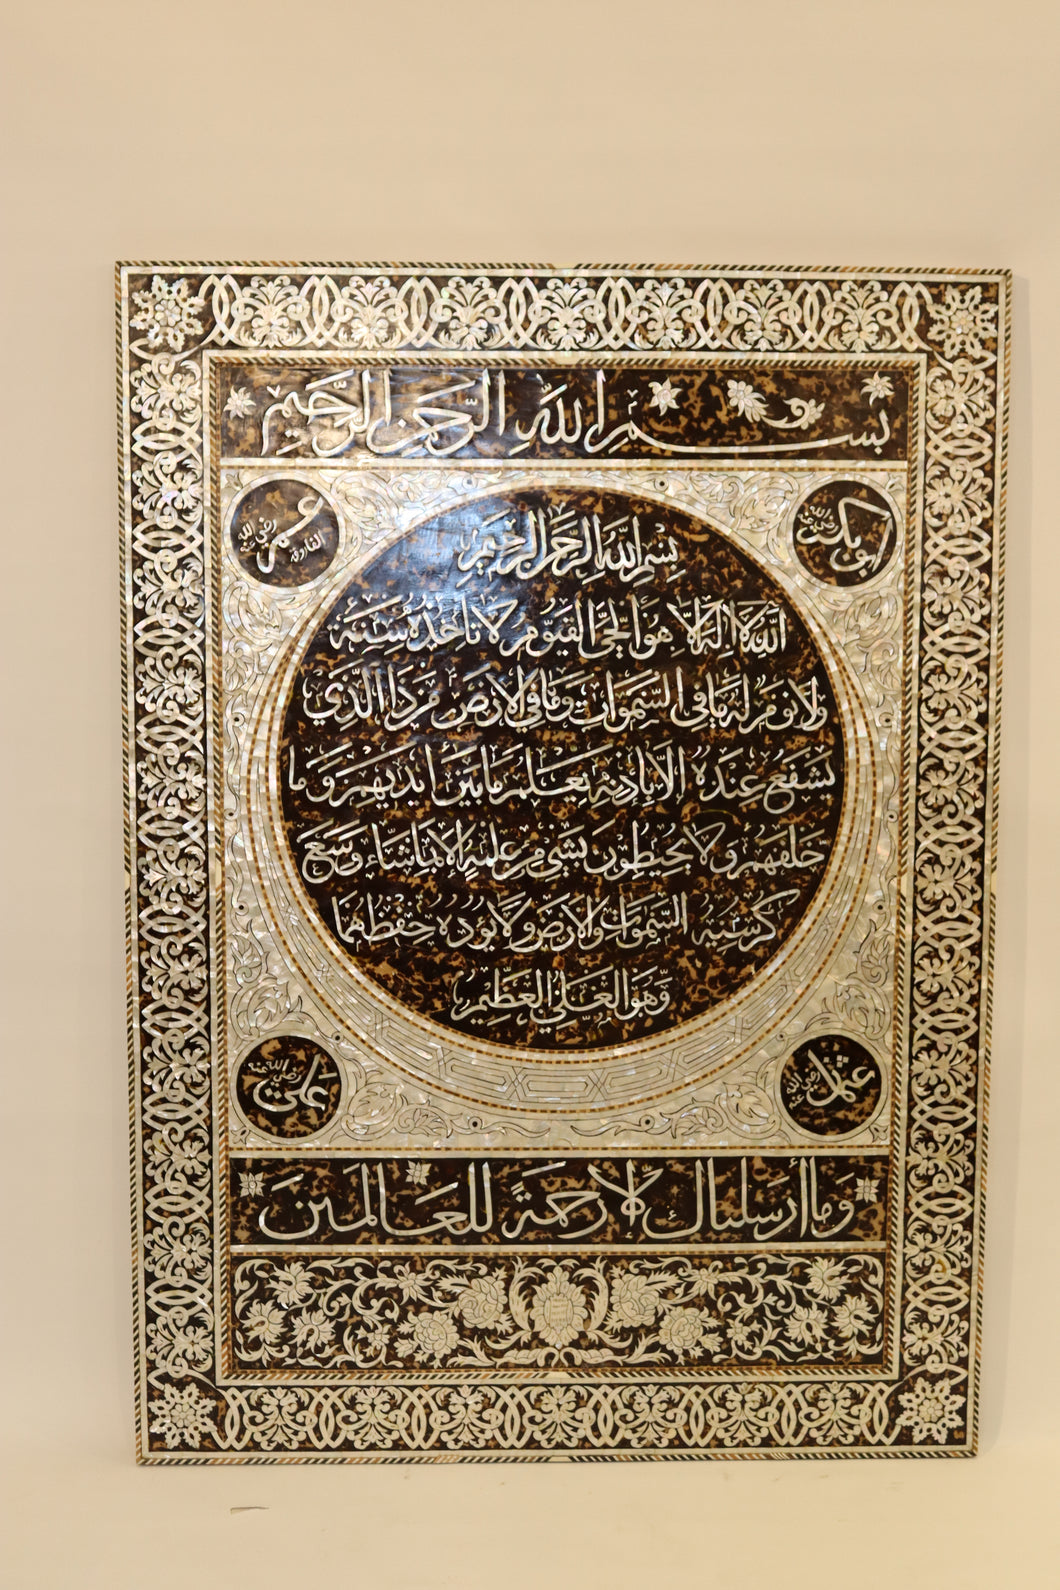 بسم الله الرحمن الرحيم
ابوبكر رضي الله عنه
عمر الفاروق رضي الله عنه
بِسْمِ اللهِ الرَّحْمٰنِ الرَّحِيمِ
اَللهُ لَا اِلٰهَ اِلَّا هُوَ الْحَيُّ الْقَيُّومُ لَا تَأْخُذُهُ سِنَةٌ
وَلَا نَوْمٌ لَهُ مَا فِي السَّمٰوَاتِ وَمَا فِي الْاَرْضِ مَنْ ذَا الَّذِي
يَشْفَعُ عِنْدَهُ اِلَّا بِاِذْنِهِ يَعْلَمُ مَا بَيْنَ اَيْدِيهِمْ وَمَا
خَلْفَهُمْ وَلَا يُحِيطُونَ بِشَيْءٍ مِنْ عِلْمِهِ اِلَّا بِمَا شَاءَ وَسِعَ
كُرْسِيُّهُ السَّمٰوَاتِ وَالْاَرْضَ وَلَا يَؤُدُهُ حِفْظُهُمَا
وَهُوَ الْعَلِيُّ الْعَظِيمُ
عثمان رضي الله عنه
علي رضي الله عنه
وَمَا أَرْسَلْنَاكَ إِلَّا رَحْمَةً لِلْعَالَمِينَ